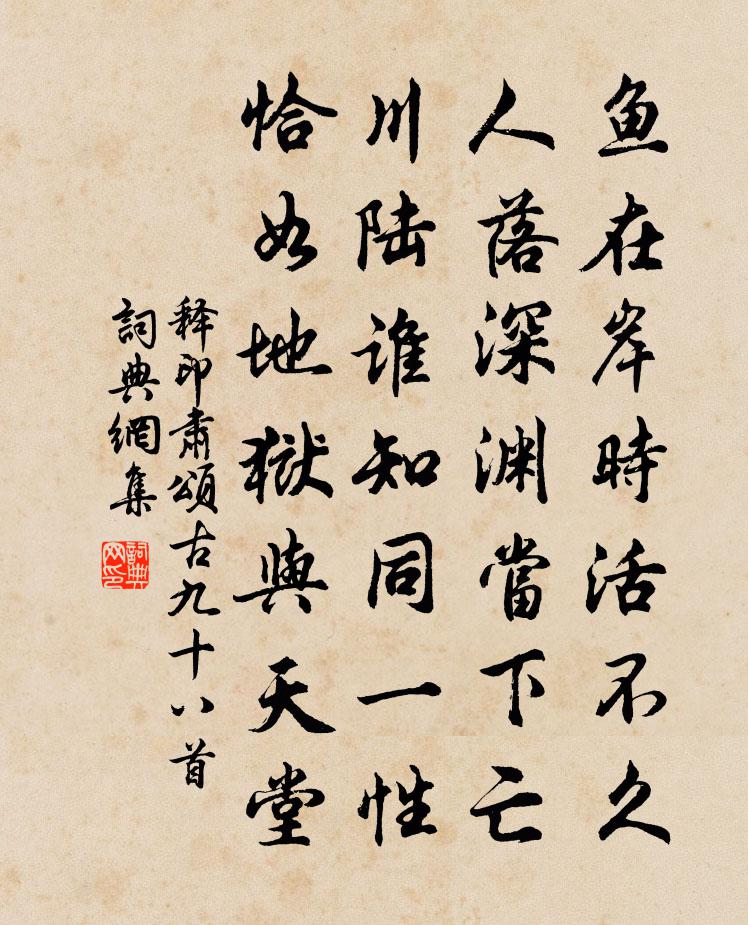 鱼在岸時活不久
人落深渊當下亡
川陆谁知同一性
恰如地獄與天堂
释印肃頌古九十八首
詞典網集
詞典网印